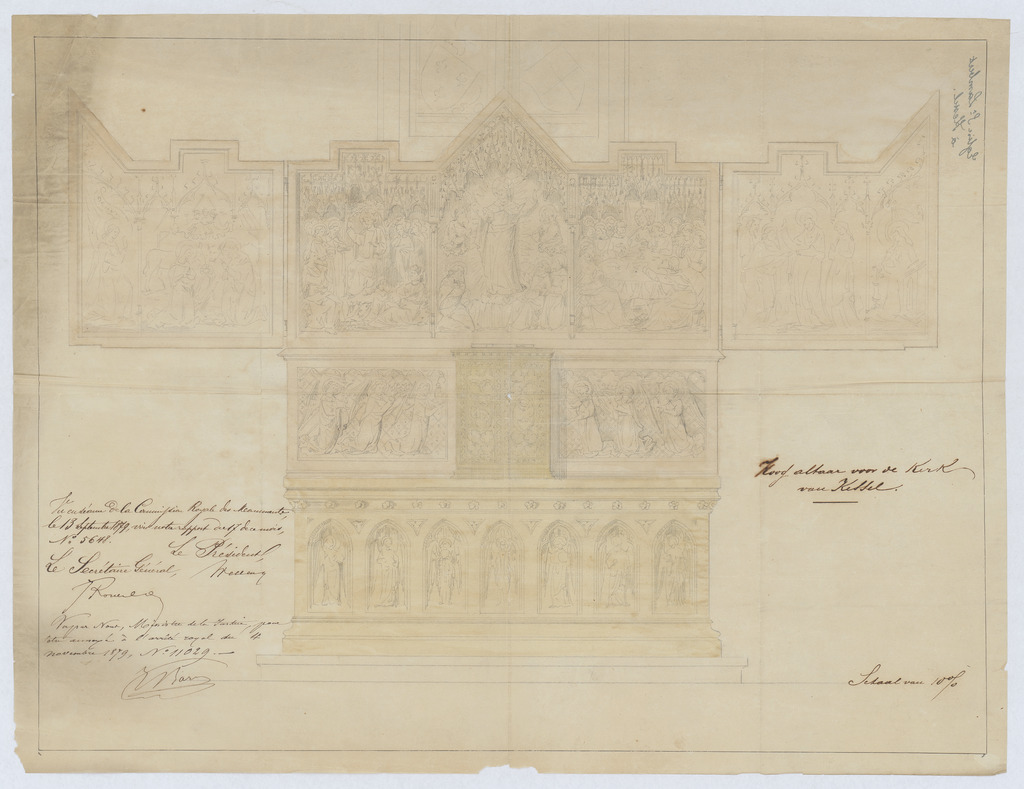 Vu en séance de la Commission Royale des Monuments,
le 13 Septembre 1879, vu notre rapport de ce mois,
N° 5648.
Le Président,
Le Secrétaire Général,
Vu par Nous, Ministre de la Justice, pour
être annexé à l'arrêté royal du 4
novembre 1879, N° 11029.
J Bara
Hoog altaar voor de Kerk
van Kessel.
Schaal van 10 %
Eglise St Lambert
à Kessel.